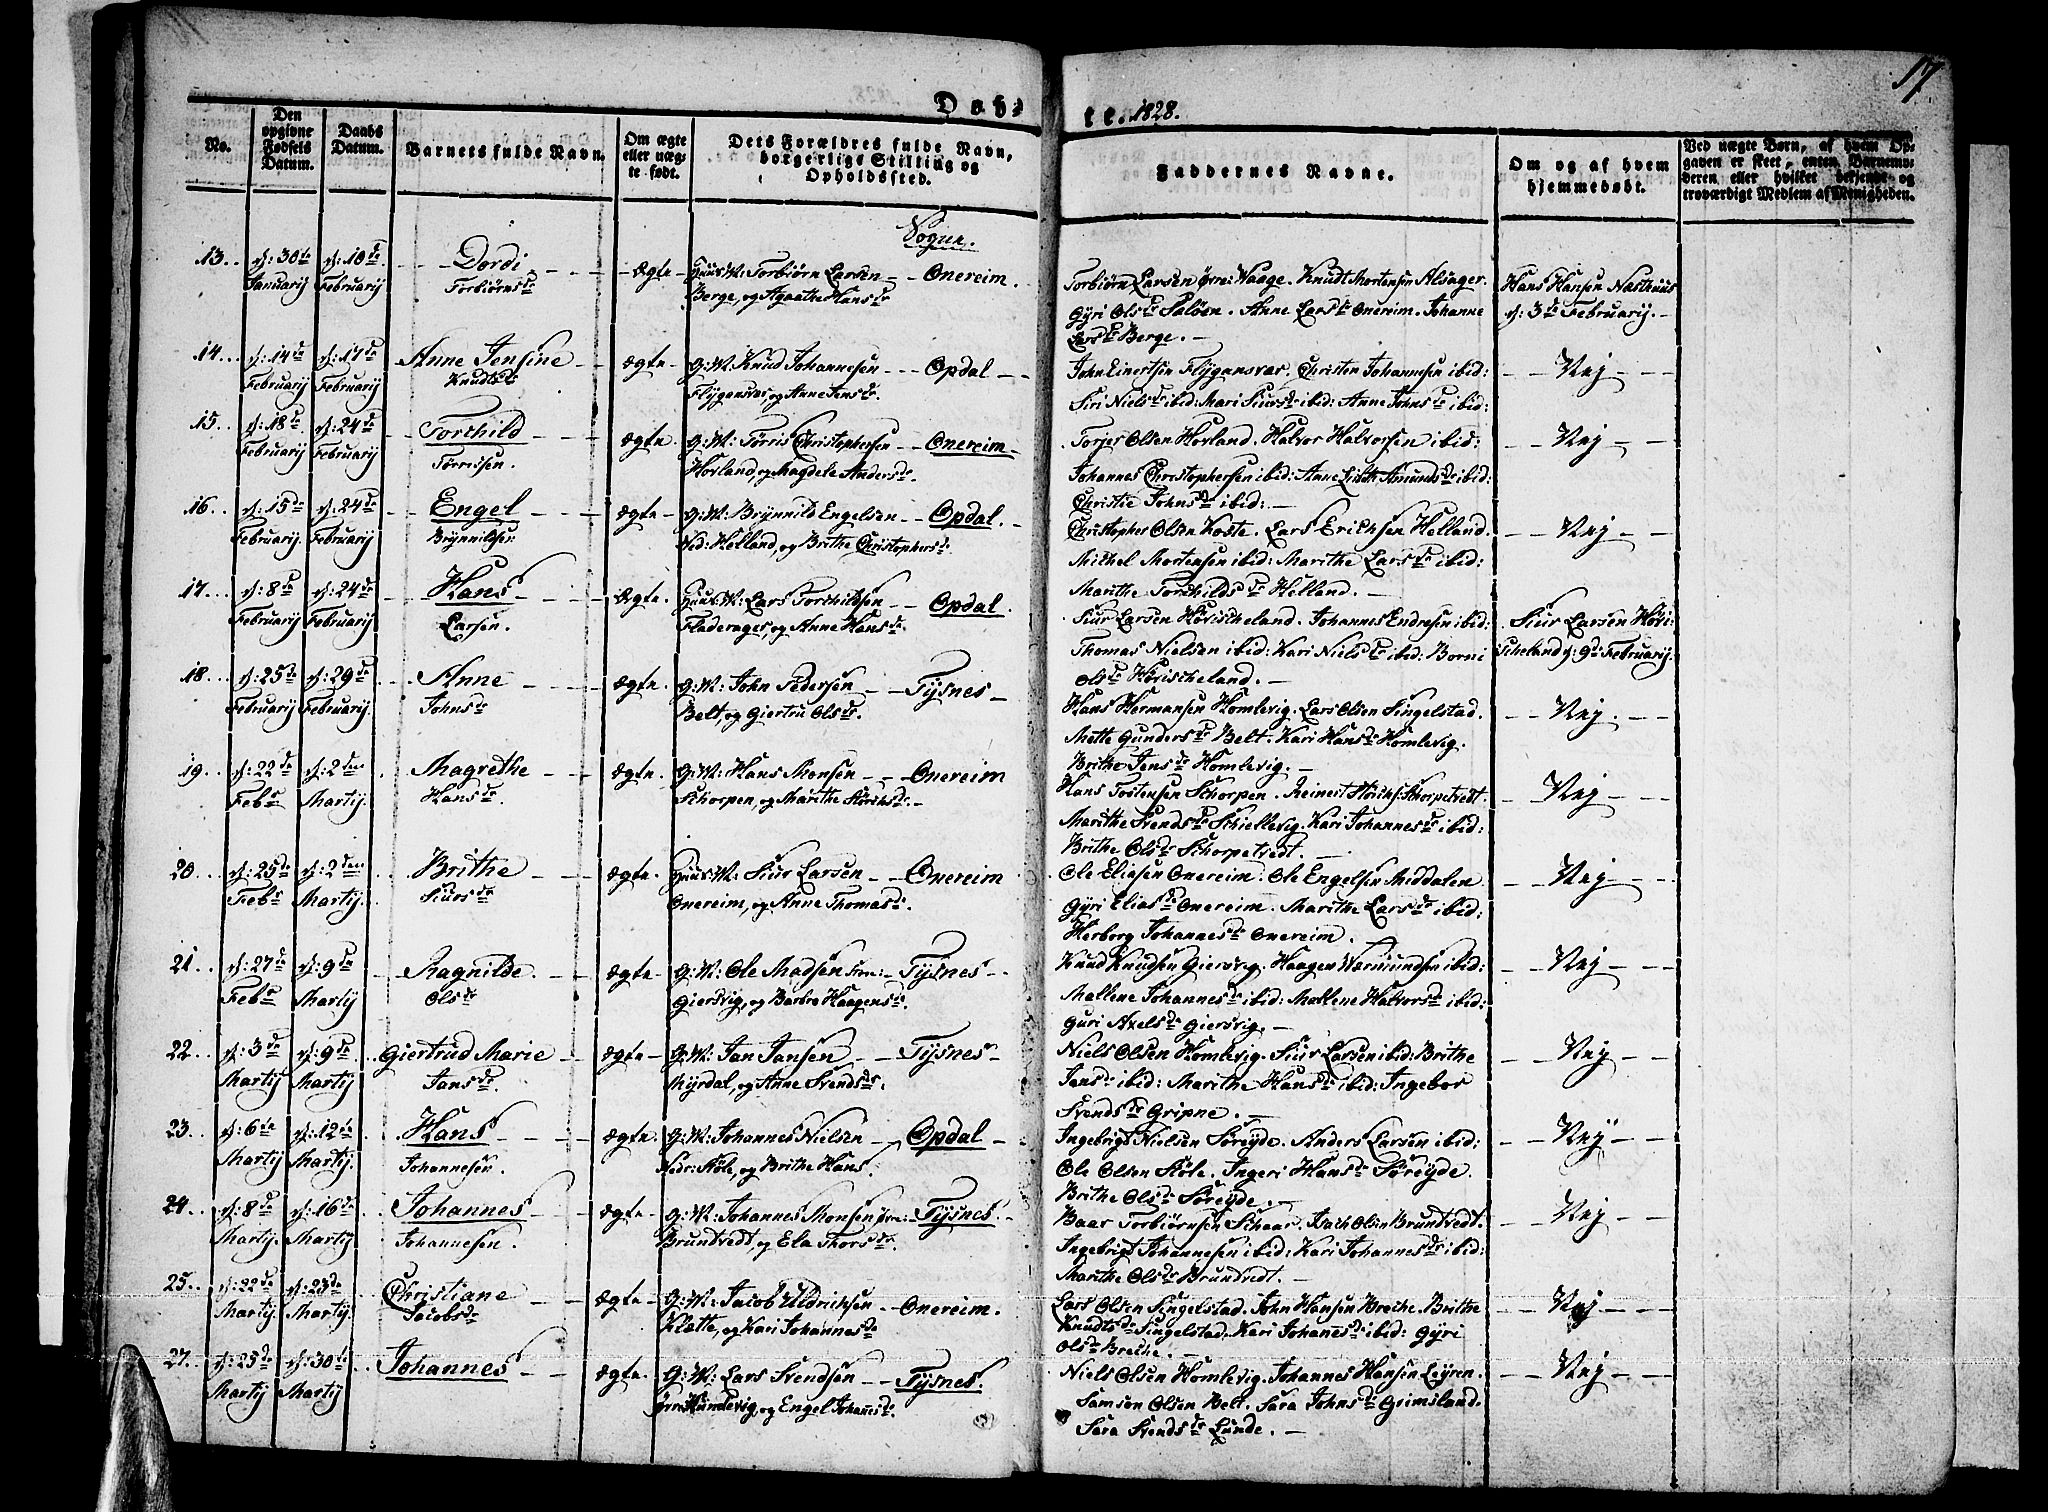 17.
Døbte. 1828.
No.
Den opgivne Fødsels Datum.
Daabs Datum.
Barnets fulde Navn.
Om ægte eller uægte født.
Dets Forældres fulde Navn, borgerlige Stilling og Opholdssted.
Faddernes Navne.
Om og af hvem hjemmedøbt.
Ved uægte Børn, af hvem Opgaven er skeet, enten Barnemoderen eller hvilket bekjendt og troværdigt Medlem af Menigheden.
Sogne.
13. d: 30te Januarij d: 10de Februarij Dordi Torbiørnsdr
Ægte Huus M: Torbiørn Larsen Onereim.
Berge, og Agaathe Hansdr
Torbiørn Larsen øvre: Waage. Knudt Mortensen Alsager.
Gÿri Olsdr Saløen. Anne Larsdr Onereim. Johanne
Larsdr Berge.
Hans Hansen Nasthuus
d: 3de Februarij.
14. d: 14de Februarij d: 17de Februarij Anne Jensine Knudtsdr
Ægte G: M: Knud Johannesen Opdal
Flÿgansvær, og Anne Jensdr.
John Einertsen Flÿgansvær. Christen Johannesen ibid:
Siri Nielsdr ibid: Mari Siursdr ibid: Anne Johnsdr ibid:
Nej
15. d: 18de Februarij d: 24de Februarij Torchild Tørrissen.
Ægte G: M: Tørris Christophersen Onereim
Hovland, og Magdele Andersdr.
Torjer Olsen Hovland. Halvor Halvorsen ibid:
Johannes Christophersen ibid: Anne Lisbth Amundsdr ibid:
Christie Johnsdr ibid:
Nej
16. d: 15de Februarij d: 24de Februarij Engel Brÿnnilsen
Ægte G: M: Brÿnnild Engelsen Opdal.
Ned: Helland, og Brithe Christophersdr
Christopher Olsen Koste. Lars Erichsen Helland.
Michel Mortensen ibid: Marithe Larsdr ibid:
Marithe Torchildsdr Helland.
Nej
17. d: 8de Februarij d: 24de Februarij Hans Larsen.
Ægte. Huus M: Lars Torchildsen Opdal.
Fladerager, og Anne Hansdr.
Siur Larsen Høvischeland. Johannes Endresen ibid:
Thomas Nielsen ibid: Kari Nielsdr ibid: Borni
Olsdr Høvischeland.
Siur Larsen Høvi-
scheland d: 9de Februarij.
18. d: 25de Februarij d: 29de Februarij Anne Johnsdr
Ægte. G: M: John Pedersen Tÿsnes
Belt, og Giertru Olsdr.
Hans Hermansen Homlevig. Lars Olsen Singelstad.
Mette Gundersdr Belt. Kari Hansdr Homlevig.
Brithe Jensdr Homlevig.
Nej.
19. d: 22de Febr d: 2den Martij Magrethe Hansdr
Ægte. G: M: Hans Monsen Onereim
Schorpen, og Marithe
Hans Tostensen Schorpen. Reinert Schorpetvedt.
Marithe Svendsdr Schiellevig. Kari Johannesdr ibid:
Brithe Olsdr Schorpetvedt.
Nej
20 d: 25de Febr d: 2den Martij. Brithe Siursdr
Ægte. Huus M: Siur Larsen Onereim
Onereim, og Anne Thomasdr.
Ole Eliasen Onereim. Ole Engelsen Meddalen
Gÿri Eliasdr Onereim. Marithe Larsdr ibid:
Herborg Johannesdr Onereim.
Nej
21. d: 27de Febr d: 9de Martij Ragnilde. Olsdr
Ægte G: M: Ole Madsen Tÿsnes
Giersvig, og Barbro Haagensdr.
Knud Knudsen Giersvig. Haagen Wermundsen ibid:
Mallene Johannesdr ibid: Mallene Halvorsdr ibid:
Guri Axelsdr Giersvig.
Nej
22. d: 3de Martij d: 9de Martij Giertrud Marie Jansdr.
Ægte G: M: Jan Jansen Tÿsnes
Mÿrdal, og Anne Svendsdr.
Niels Olsen Homlevig. Siur Larsen ibid: Brithe
Jansdr ibid: Marithe Hansdr ibid: Ingebor
Svendsdr Gripne.
Nej
23. d: 6te Martij d: 12te Martij. Hans Johannesen.
Ægte. G: M: Johannes Nielsen Opdal
Nedr: Støle, og Brithe Hans:
Ingebrigt Nielsen Søreÿde. Anders Larsen ibid:
Ole Olsen Støle. Ingeri Hansdr Søreÿde.
Brithe Olsdr Søreÿde.
Nej
24. d: 8de Martij. d: 16de Martij Johannes Johannesen.
Ægte G: M: Johannes Monsen øvre: Tÿsnes.
Brundtvedt, og Ela Thorsdr.
Baar Torbiørnsen Schaar. Isach Olsen Brundtvedt.
Ingebrigt Johannesen ibid: Kari Johannesdr ibid:
Marithe Olsdr Brundvedt.
Nej
25. d: 22de Martij. d: 23de Martij. Christiane Jacobsdr
Ægte G: M: Jacob Uldrichsen Onereim.
Klætte, og Kari Johannesdr
Lars Olsen Singelstad. John Hansen Breche. Brithe
Knudtsdr Singelstad. Kari Johannesdr ibid: Gÿri
Olsdr Breche.
Nej
27. d: 25de Martij d: 30te Martij Johannes
Ægte. G: M: Lars Svendsen Tÿsnes.
og Engel Johannesdr.
Niels Olsen Homlevig. Johannes Hansen Leÿren.
Samson Olsen Belt. Sara Johnsdr Grimsland.
Sara Svendsdr Lunde.
Nej